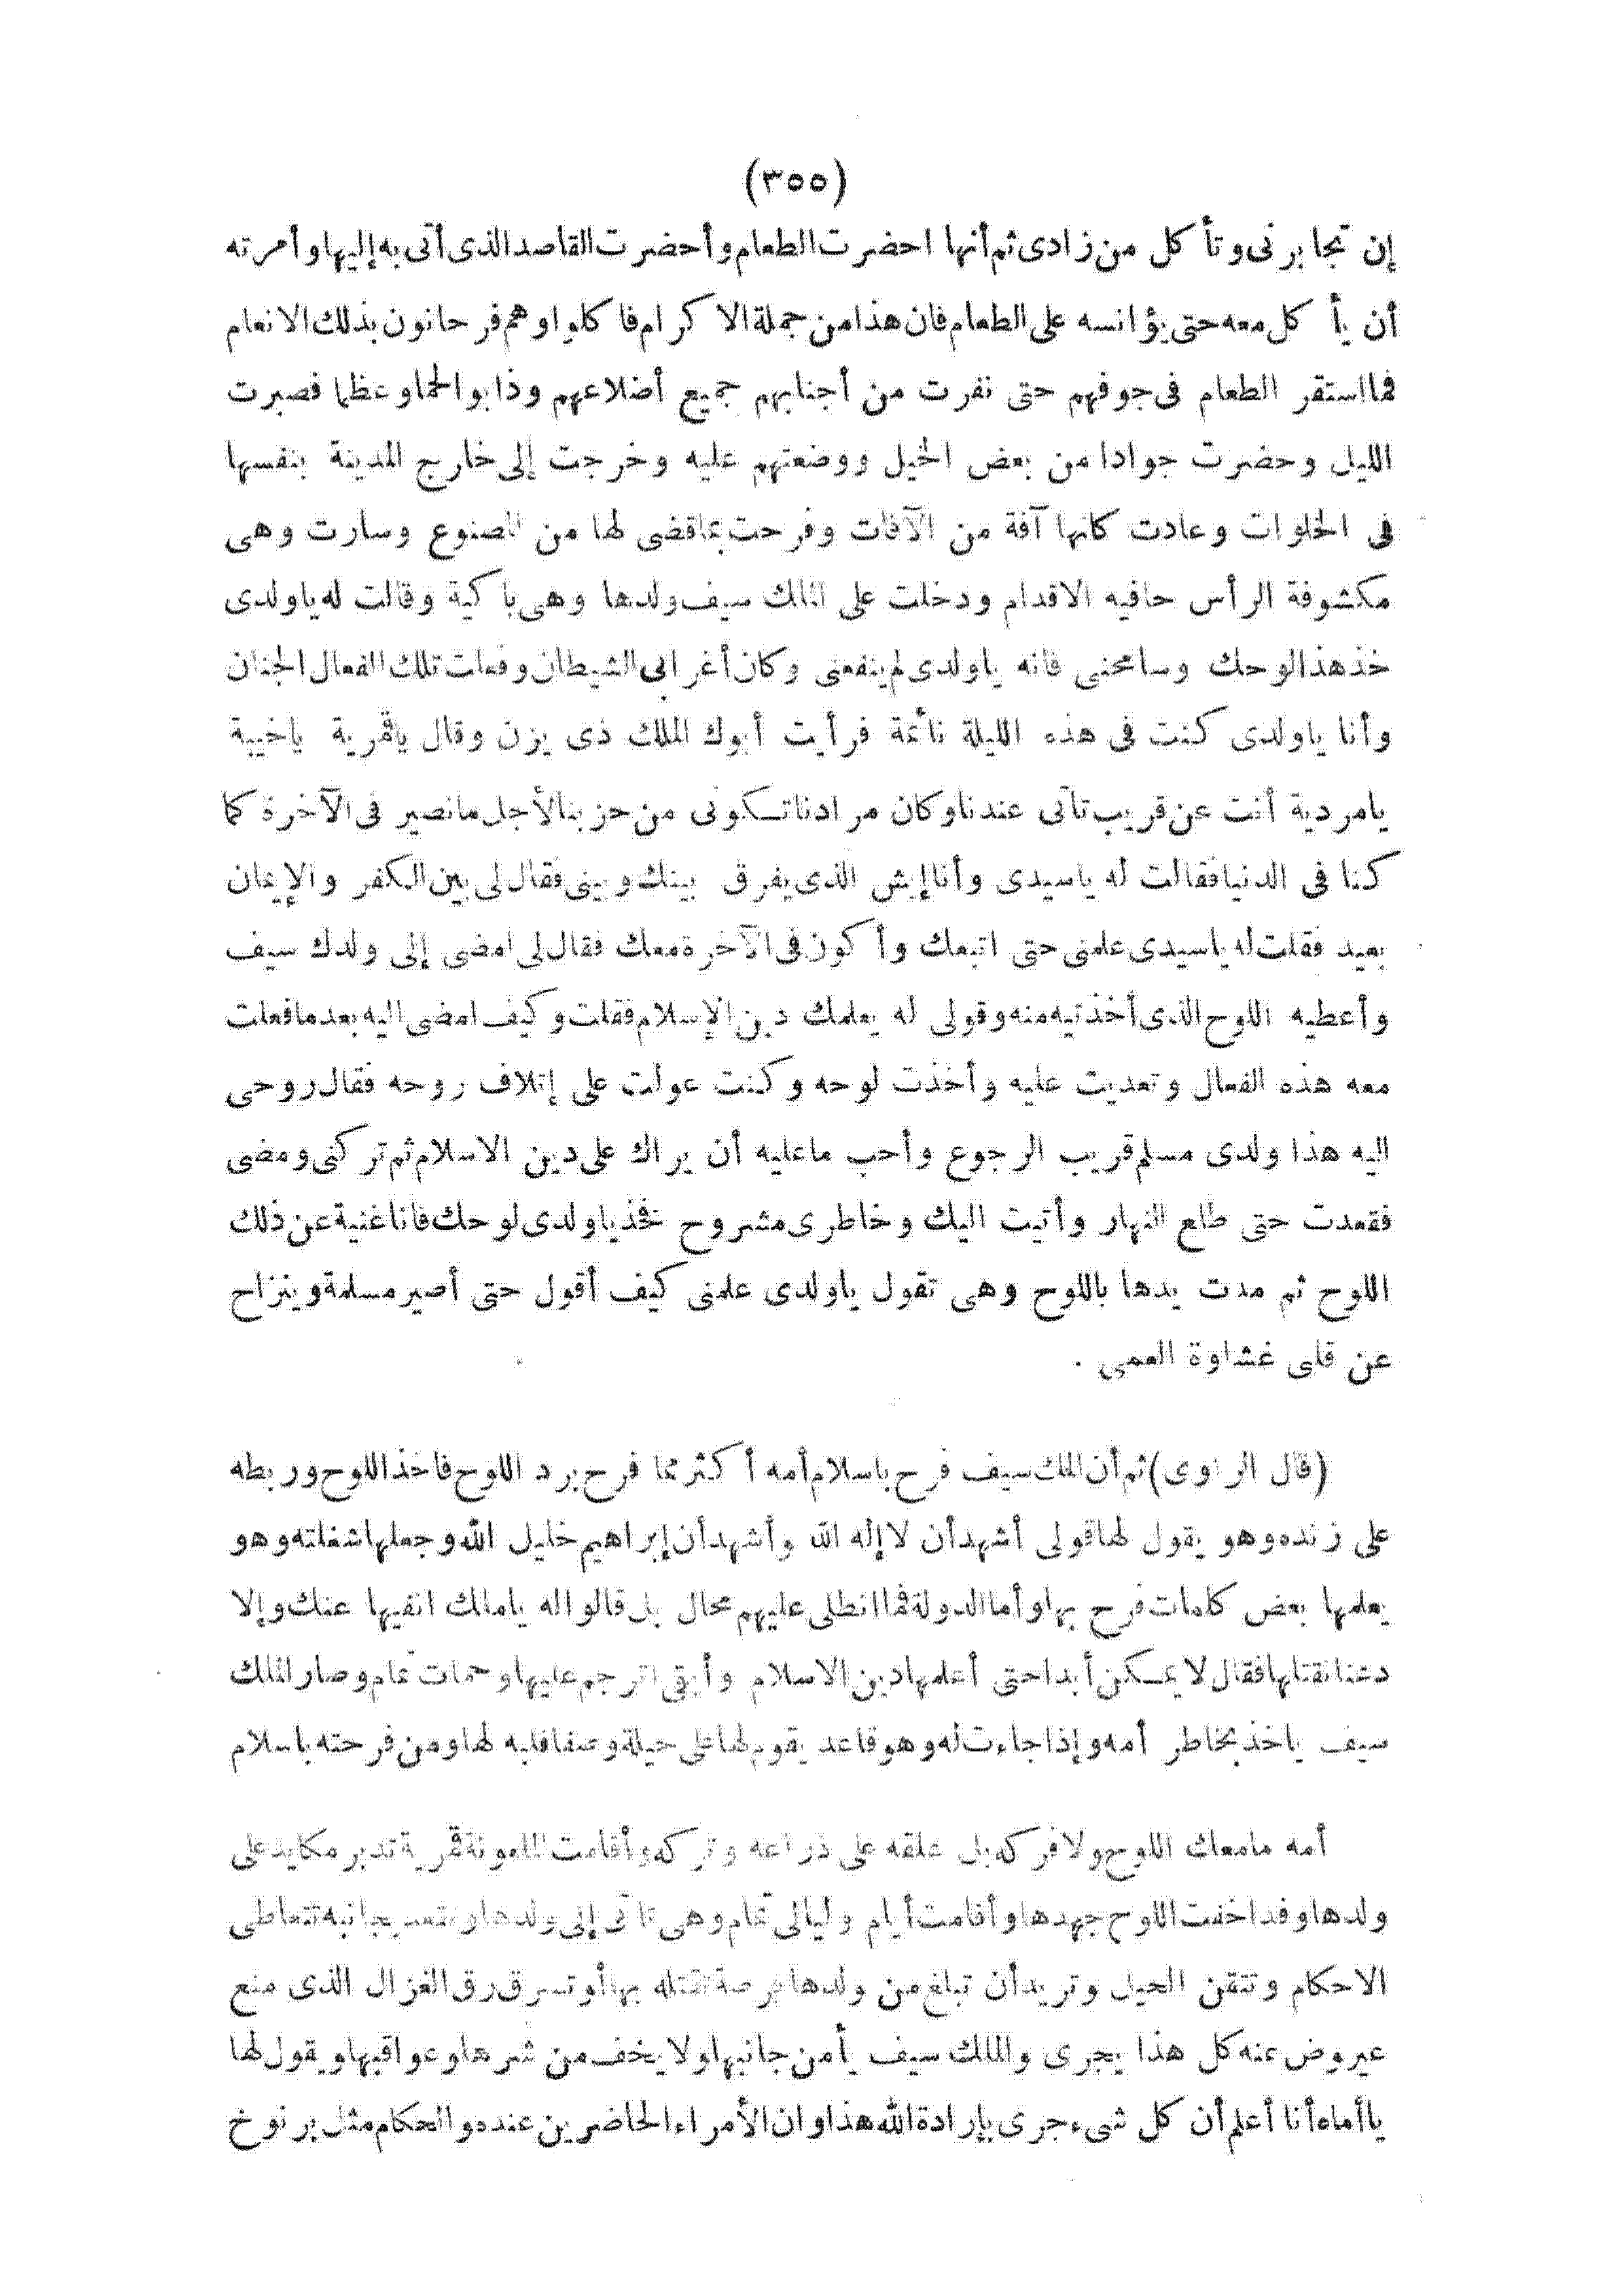 (٣٥٥)
إن تجابرنى وتأكل من زادى ثم أنها احضرت الطعام وأحضرت القاصد الذى أتى به إليها وأمرته
أن يأكل معه حتى يؤانسه على الطعام فان هذا من جملة الاكرام فاكلوا وهم فرحانون بذلك الانعام
فما استقر الطعام فى جوفهم حتى نفرت من أجنابهم جميع أضلاعهم وذابوا لحما وعظما فصبرت
الليل وحضرت جوادا من بعض الخيل ووضعتهم عليه وخرجت إلى خارج المدينة بنفسها
فى الخلوات وعادت كانها آفة من الآفات وفرحت بما قضى لها من المصنوع وسارت وهى
مكشوفة الرأس حافيه الاقدام ودخلت على الملك سيف ولدها وهى باكية وقالت له ياولدى
خذ هذا لوحك وسامحنى فانه ياولدى لم ينفعنى وكان أغرانى الشيطان وفعلت تلك الفعال الجنان
وأنا ياولدى كنت فى هذه الليلة نائمة فرأيت أبوك الملك ذى يزن وقال ياقمرية ياخيبة
يامردية أنت عن قريب تأتى عندنا وكان مرادنا تكونى من حزبنا لأجل مانصير فى الآخرة كما
كنا فى الدنيا فقالت له ياسيدى وأنا إيش الذى يفرق بينك وبينى فقال لى بين الكفر والإيمان
بعيد فقلت له ياسيدى علمنى حتى اتبعك وأكون فى الآخرة معك فقال لى امضى إلى ولدك سيف
وأعطيه اللوح الذى أخذتيه منه وقولى له يعلمك دين الإسلام فقلت وكيف امضى اليه بعد مافعلت
معه هذه الفعال وتعديت عليه وأخذت لوحه وكنت عولت على إتلاف روحه فقال روحى
اليه هذا ولدى مسلم قريب الرجوع وأحب ماعليه أن يراك على دين الاسلام ثم تركنى ومضى
فقعدت حتى طلع النهار وأتيت اليك وخاطرى مشروح فخذ ياولدى لوحك فانا غنية عن ذلك
اللوح ثم مدت يدها باللوح وهى تقول ياولدى علمنى كيف أقول حتى أصير مسلمة وينزاح
عن قلبى غشاوة العمى .
(قال الراوى) ثم أن الملك سيف فرح باسلام أمه أكثر مما فرح برد اللوح فاخذ اللوح وربطه
على زنده وهو يقول لها قولى أشهد أن لا إله الا الله وأشهد أن إبراهيم خليل الله وجعلها شغلته وهو
يعلمها بعض كلمات فرح بها وأما الدولة فما انطلى عليهم محال بل قالوا له ياملك انفيها عنك وإلا
دعنا نقتلها فقال لا يمكن أبدا حتى أعلمها دين الاسلام وأبقى اترجم عليها وحمات تمام وصار الملك
سيف ياخذ بخاطر أمه وإذا جاءت له وهو قاعد يقوم لها على حيلة وصفا قلبه لها ومن فرحته باسلام
أمه مامعك اللوح ولا فركه بل علقه على ذراعه وتركه وأقامت الملعونة قمرية تدبر مكايد على
ولدها وقد اخفت اللوح جهدها وأقامت أيام وليالى تمام وهى تأتى إلى ولدها وتقعد بجانبه تتعاطى
الاحكام وتتقن الحيل وتريد أن تبلغ من ولدها فرصة تقتله بها أو تسرق رق الغزال الذى منع
عيروض عنه كل هذا يجرى والملك سيف يأمن جانبها ولا يخف من شرها وعواقبها ويقول لها
ياأماه أنا أعلم أن كل شىء جرى بإرادة الله هذا وان الأمراء الحاضرين عنده والحكام مثل برنوخ